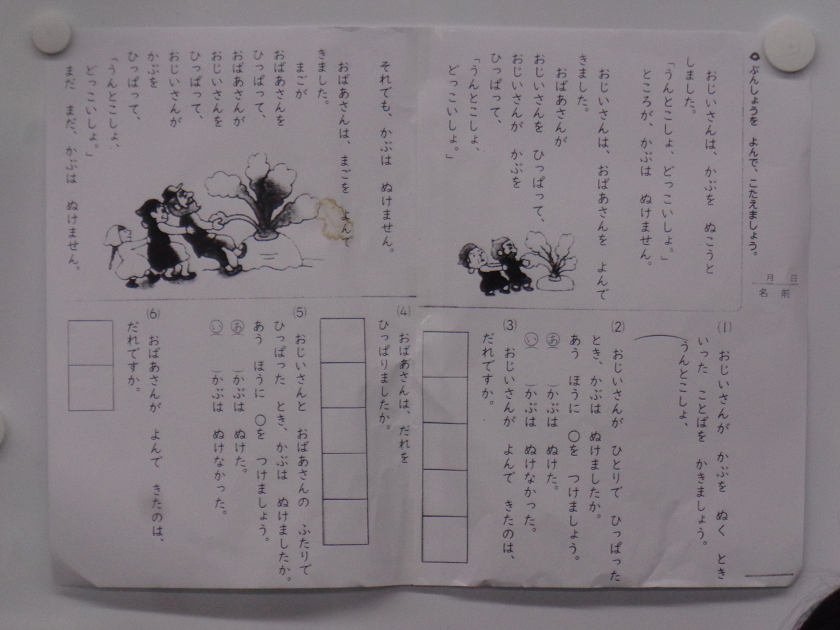 ぶんしょうを よんで、こたえましょう。
月 日
名 前
おじいさんは、かぶを ぬこうと
しました。
「うんとこしょ、どっこいしょ。」
ところが、かぶは ぬけません。
おじいさんは、おばあさんを よんで
きました。
おばあさんが
おじいさんを ひっぱって、
おじいさんが かぶを
ひっぱって、
「うんとこしょ、
どっこいしょ。」
それでも、かぶは ぬけません。
おばあさんは、まごを よんで
きました。
まごが
おばあさんを
ひっぱって、
おばあさんが
おじいさんを
ひっぱって、
おじいさんが
かぶを
ひっぱって、
「うんとこしょ、
どっこいしょ。」
まだ まだ、かぶは ぬけません。
(1) おじいさんが かぶを ぬく とき
いった ことばを かきましょう。
うんとこしょ、
(2) おじいさんが ひとりで ひっぱった
とき、かぶは ぬけましたか。
あう ほうに ○を つけましょう。
あ かぶは ぬけた。
い かぶは ぬけなかった。
(3) おじいさんが よんで きたのは、
だれですか。
(4) おばあさんは、だれを
ひっぱりましたか。
(5) おじいさんと おばあさんの ふたりで
ひっぱった とき、かぶは ぬけましたか。
あう ほうに ○を つけましょう。
あ かぶは ぬけた。
い かぶは ぬけなかった。
(6) おばあさんが よんで きたのは、
だれですか。